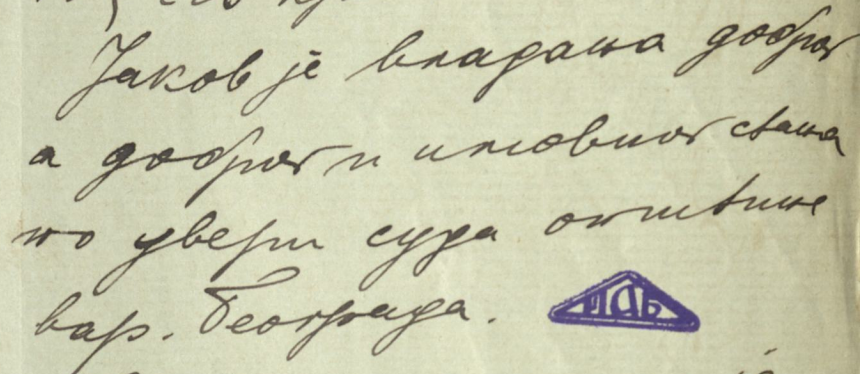 Јаков је владања доброг
а доброг и имовног стања
по увери суда општине
вар. Београда.
ИАБ